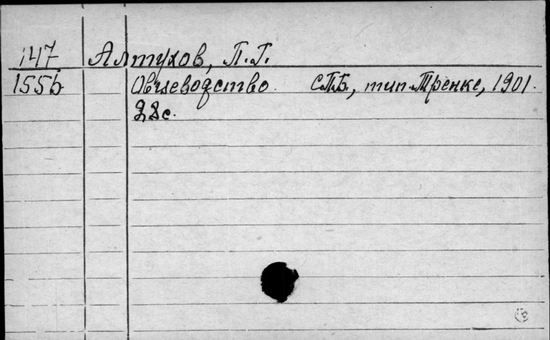 147 Алтухов, П.Г.
1556 Овцеводство. СПБ, тип. Тренке, 1901.
22с.